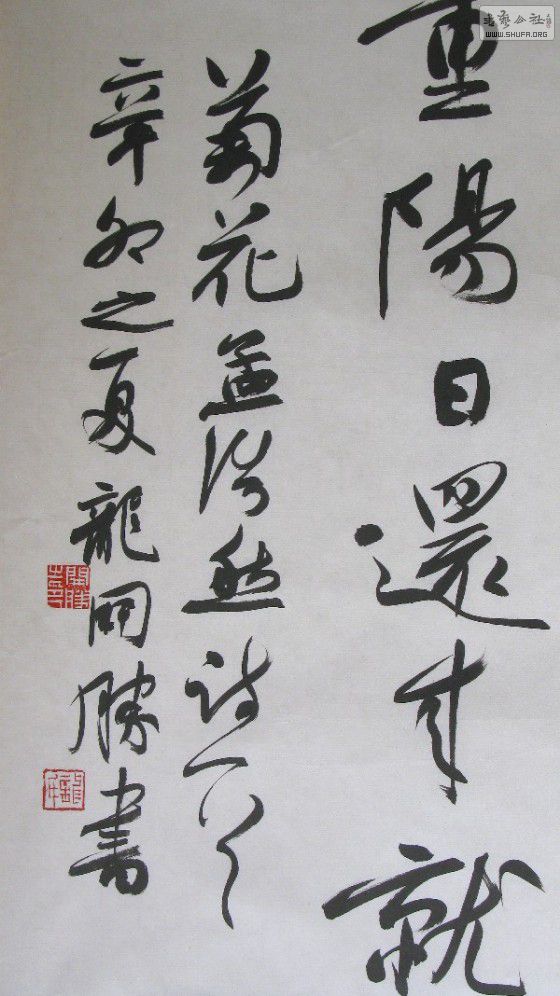 重陽日還來就
菊花孟浩然詩一首
辛卯之夏龍開勝書
書藝公社
WWW.SHUFA.ORG